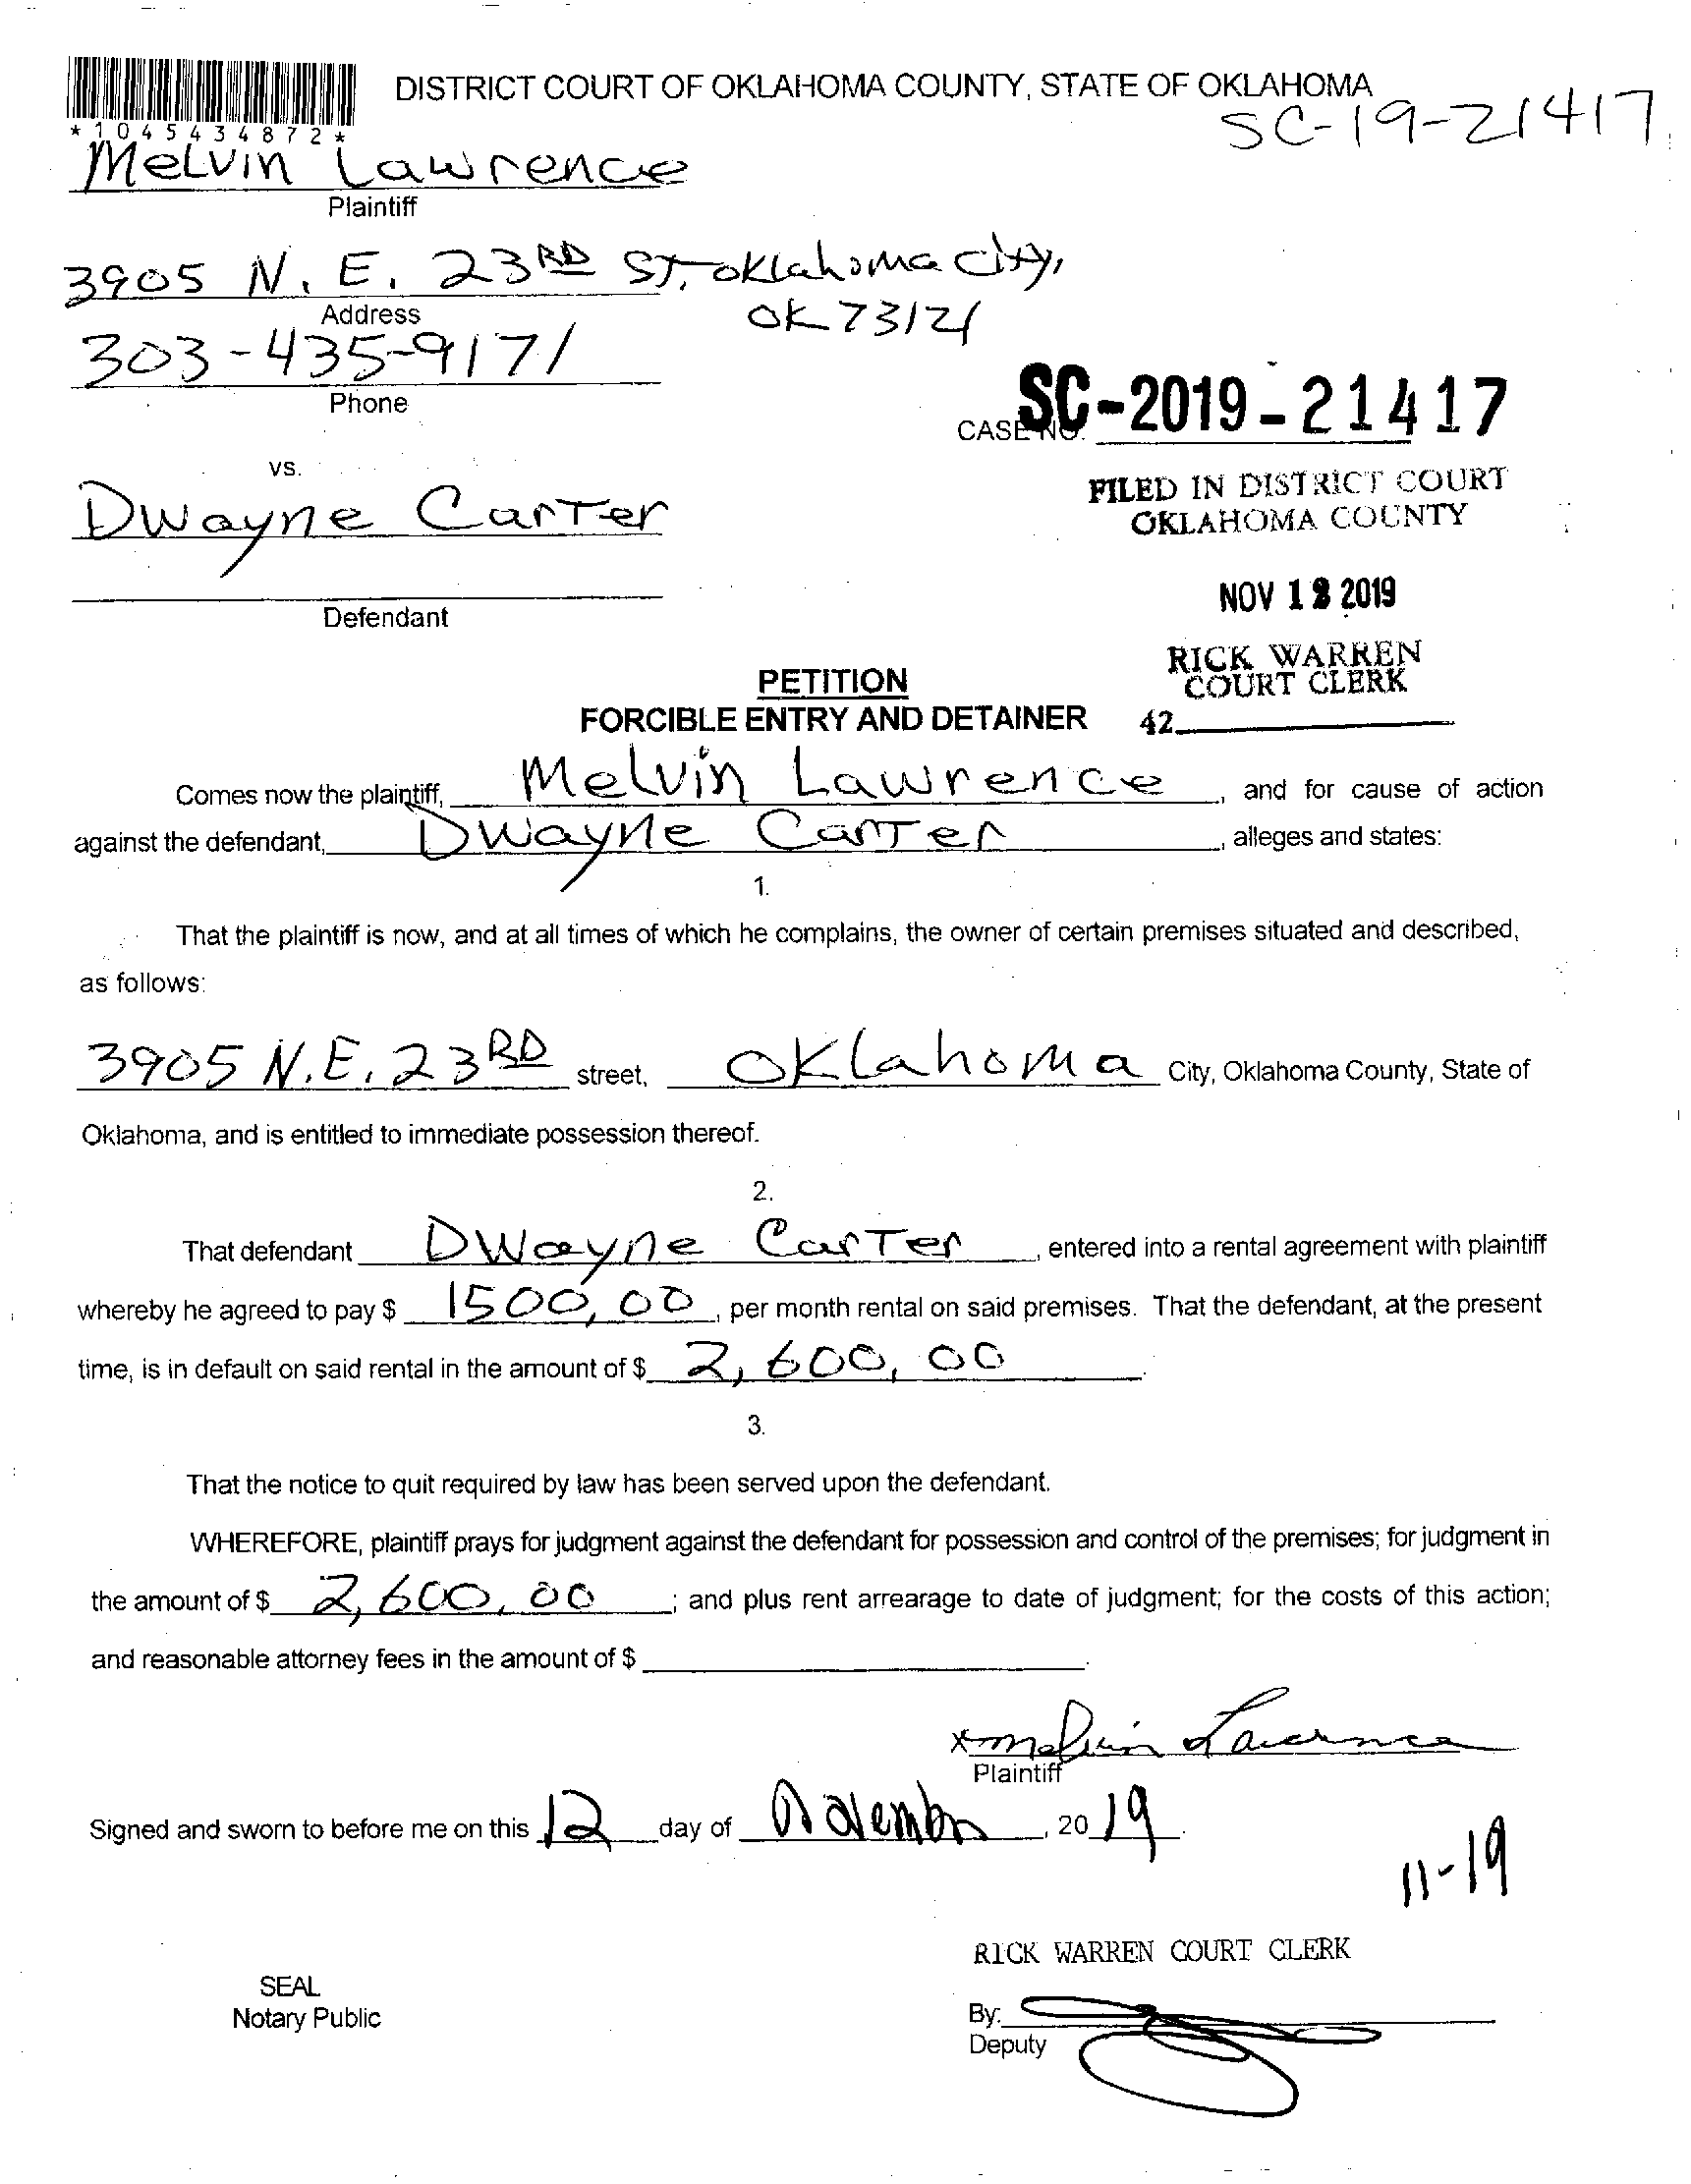 DISTRICT COURT OF OKLAHOMA COUNTY, STATE OF OKLAHOMA
SC-19-21417
*1045434872*
Melvin Lawrence
Plaintiff
3905 N. E. 23RD ST, Oklahoma City,
OK 73121
Address
303-435-9171
Phone
CASE NO. SC-2019-21417
vs.
FILED IN DISTRICT COURT
OKLAHOMA COUNTY
Dwayne Carter
NOV 12 2019
Defendant
RICK WARREN
COURT CLERK
42
PETITION
FORCIBLE ENTRY AND DETAINER
Comes now the plaintiff, Melvin Lawrence, and for cause of action
against the defendant, Dwayne Carter, alleges and states:
1.
That the plaintiff is now, and at all times of which he complains, the owner of certain premises situated and described,
as follows:
3905 N.E. 23RD street, Oklahoma City, Oklahoma County, State of
Oklahoma, and is entitled to immediate possession thereof.
2.
That defendant Dwayne Carter, entered into a rental agreement with plaintiff
whereby he agreed to pay $ 1500,00, per month rental on said premises. That the defendant, at the present
time, is in default on said rental in the amount of $ 2,600,00.
3.
That the notice to quit required by law has been served upon the defendant.
WHEREFORE, plaintiff prays for judgment against the defendant for possession and control of the premises; for judgment in
the amount of $ 2,600,00; and plus rent arrearage to date of judgment; for the costs of this action;
and reasonable attorney fees in the amount of $
x Melvin Lawrence
Plaintiff
Signed and sworn to before me on this 12 day of November, 2019.
11-19
RICK WARREN COURT CLERK
SEAL
Notary Public
By:
Deputy